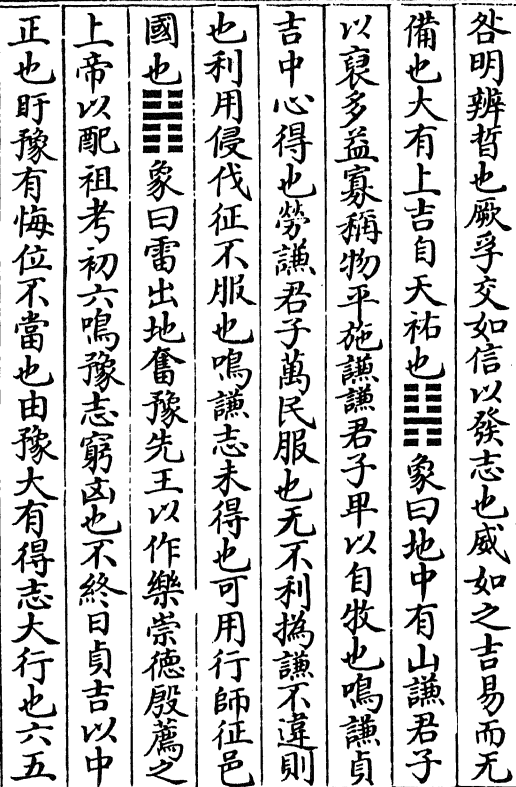 咎明辨晢也厥孚交如信以發志也威如之吉易而无
備也大有上吉自天祐也䷎象曰地中有山謙君子
以裒多益寡稱物平施謙謙君子卑以自牧也鳴謙貞
吉中心得也勞謙君子萬民服也无不利撝謙不違則
也利用侵伐征不服也鳴謙志未得也可用行師征邑
國也䷏象曰雷出地奮豫先王以作樂崇德殷薦之
上帝以配祖考初六鳴豫志窮凶也不終日貞吉以中
正也盱豫有悔位不當也由豫大有得志大行也六五